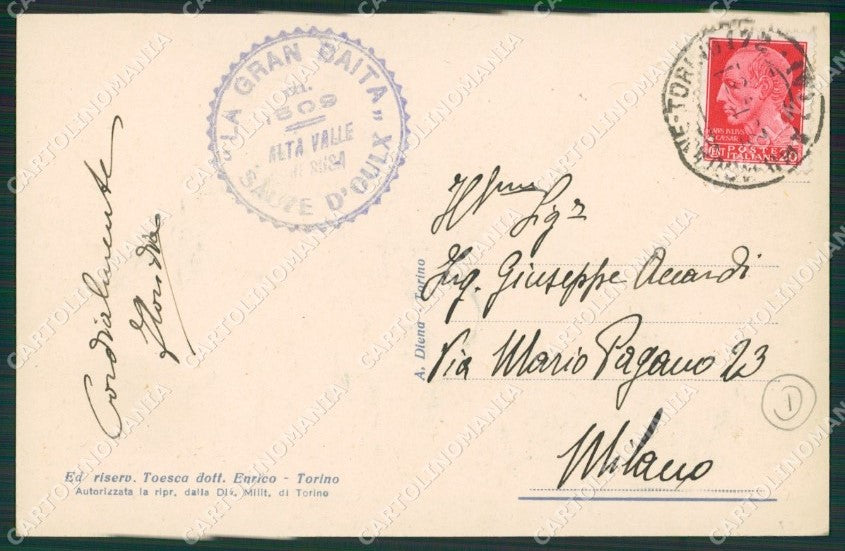 "LA GRAN BAITA"
m. 1509
ALTA VALLE
di SUSA
SAUZE D'OULX
CAIVS IVLIVS
CAESAR
POSTE
ITALIANE
Cordialmente
Ill.mo Sig.r
Ing. Giuseppe Accardi
Via Mario Pagano 23
Milano
1
A. Diena - Torino
Ed. riserv. Toesca dott. Enrico - Torino
Autorizzata la ripr. dalla Div. Milit. di Torino
CARTOLINOMANIA